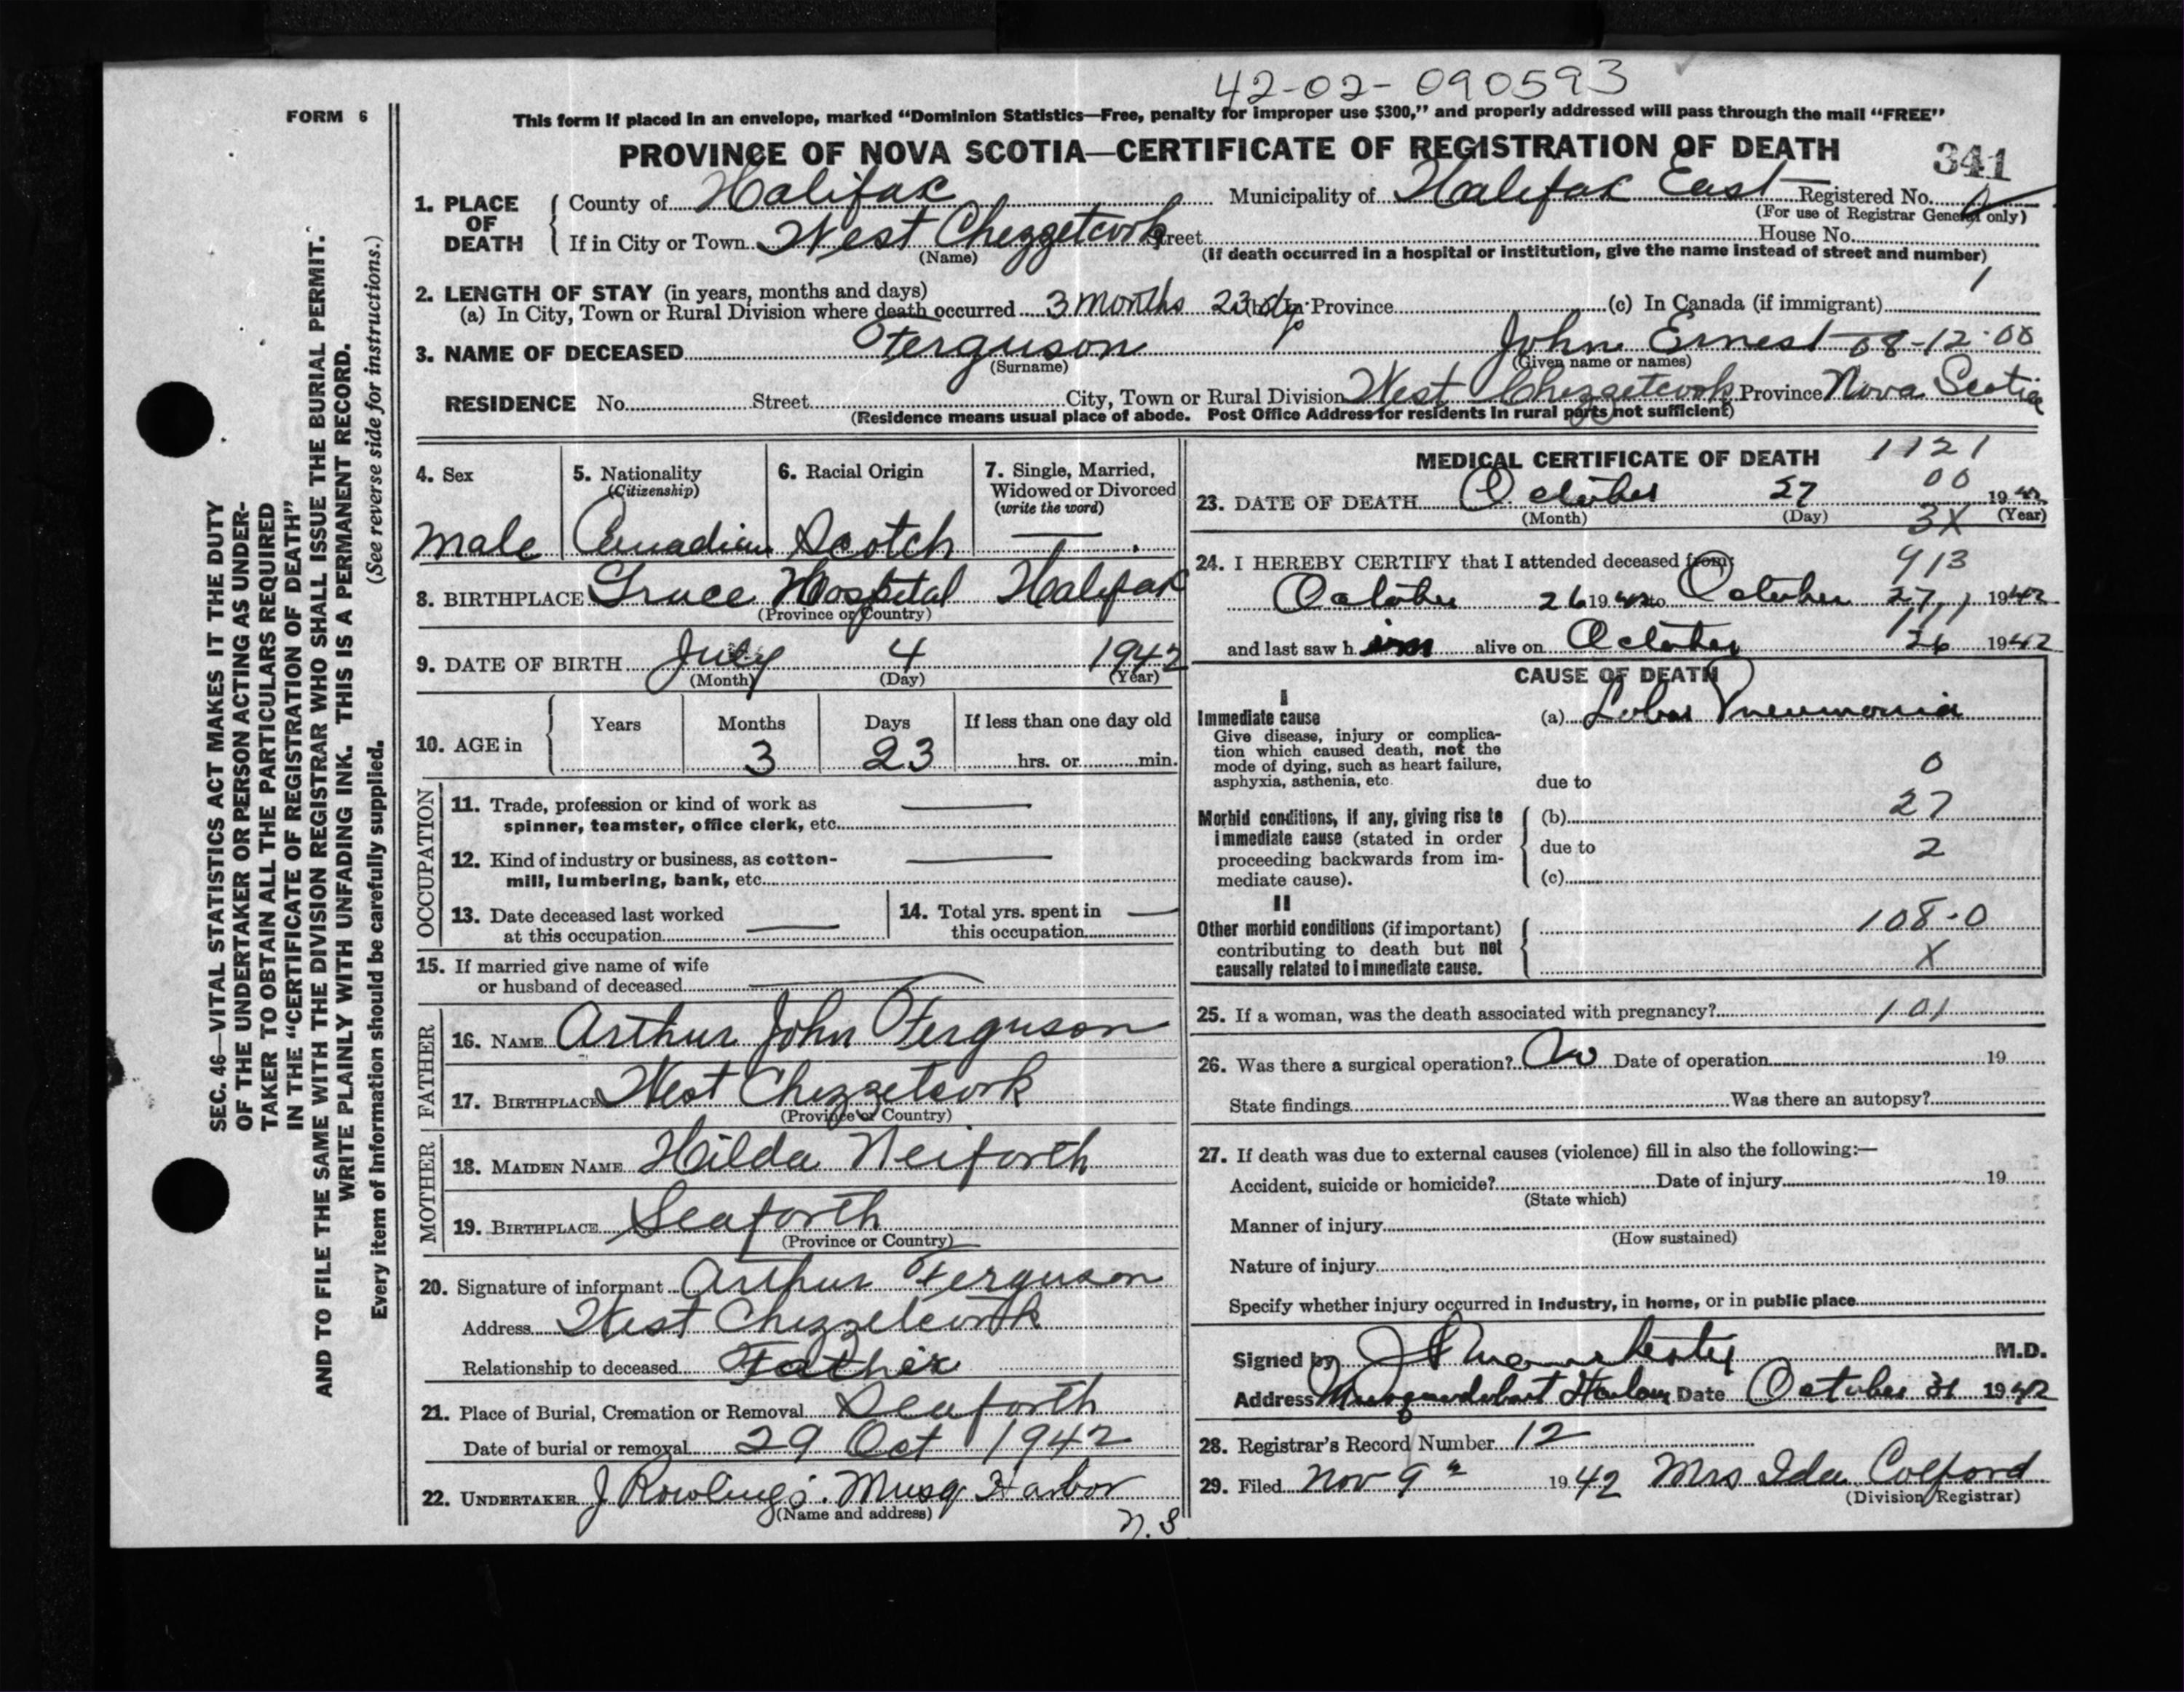 42-02-090593
FORM 6
This form if placed in an envelope, marked "Dominion Statistics—Free, penalty for improper use $300," and properly addressed will pass through the mail "FREE"
PROVINCE OF NOVA SCOTIA—CERTIFICATE OF REGISTRATION OF DEATH
341
1. PLACE OF DEATH
County of Halifax Municipality of Halifax East Registered No.
(For use of Registrar General only)
If in City or Town West Chezzetcook Street House No.
(Name) (If death occurred in a hospital or institution, give the name instead of street and number)
1
2. LENGTH OF STAY (in years, months and days)
(a) In City, Town or Rural Division where death occurred 3 months 23 dy (b) In Province (c) In Canada (if immigrant)
3. NAME OF DECEASED Ferguson John Ernest 08-12-00
(Surname) (Given name or names)
RESIDENCE No. Street City, Town or Rural Division West Chezzetcook Province Nova Scotia
(Residence means usual place of abode. Post Office Address for residents in rural parts not sufficient)
4. Sex
Male
5. Nationality
(Citizenship)
Canadian
6. Racial Origin
Scotch
7. Single, Married, Widowed or Divorced
(write the word)
—
8. BIRTHPLACE Grace Hospital Halifax
(Province or Country)
9. DATE OF BIRTH July 4 1942
(Month) (Day) (Year)
10. AGE in
Years Months Days If less than one day old
3 23 hrs. or min.
OCCUPATION
11. Trade, profession or kind of work as
spinner, teamster, office clerk, etc. —
12. Kind of industry or business, as cotton-
mill, lumbering, bank, etc. —
13. Date deceased last worked
at this occupation —
14. Total yrs. spent in
this occupation —
15. If married give name of wife
or husband of deceased —
FATHER
16. NAME Arthur John Ferguson
17. BIRTHPLACE West Chezzetcook
(Province or Country)
MOTHER
18. MAIDEN NAME Hilda Neiforth
19. BIRTHPLACE Seaforth
(Province or Country)
20. Signature of informant Arthur Ferguson
Address West Chezzetcook
Relationship to deceased Father
21. Place of Burial, Cremation or Removal Seaforth
Date of burial or removal 29 Oct 1942
22. UNDERTAKER J Rowlings. Musq Harbor
(Name and address) N.S
MEDICAL CERTIFICATE OF DEATH 1121
00
23. DATE OF DEATH October 27 1942
(Month) (Day) (Year)
3X
24. I HEREBY CERTIFY that I attended deceased from: 913
October 26 1942 to October 27 1942
111
and last saw h im alive on October 26 1942
CAUSE OF DEATH
I
Immediate cause
Give disease, injury or complica-
tion which caused death, not the
mode of dying, such as heart failure,
asphyxia, asthenia, etc.
(a) Lobar Pneumonia
0
due to
Morbid conditions, if any, giving rise to
immediate cause (stated in order
proceeding backwards from im-
mediate cause).
(b) 27
due to 2
(c)
II
Other morbid conditions (if important)
contributing to death but not
causally related to immediate cause.
108-0
X
25. If a woman, was the death associated with pregnancy? 101
26. Was there a surgical operation? No Date of operation 19
State findings Was there an autopsy?
27. If death was due to external causes (violence) fill in also the following:—
Accident, suicide or homicide? Date of injury 19
(State which)
Manner of injury
(How sustained)
Nature of injury
Specify whether injury occurred in Industry, in home, or in public place
Signed by Manchester M.D.
Address Musquodoboit Harbour Date October 31 1942
28. Registrar's Record Number 12
29. Filed Nov 9th 1942 Mrs Ida Colford
(Division Registrar)
SEC. 46—VITAL STATISTICS ACT MAKES IT THE DUTY
OF THE UNDERTAKER OR PERSON ACTING AS UNDER-
TAKER TO OBTAIN ALL THE PARTICULARS REQUIRED
IN THE "CERTIFICATE OF REGISTRATION OF DEATH"
AND TO FILE THE SAME WITH THE DIVISION REGISTRAR WHO SHALL ISSUE THE BURIAL PERMIT.
WRITE PLAINLY WITH UNFADING INK. THIS IS A PERMANENT RECORD.
Every item of Information should be carefully supplied. (See reverse side for instructions.)